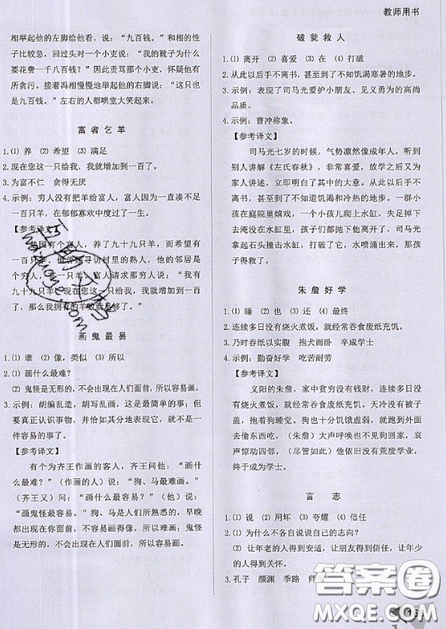 教师用书
相举起左脚给他看，说："九百钱。"和的性
子比较急，回头对一个小吏说："我的靴子为什么
要花费一千八百钱？"因此责骂那个小吏，怀疑他有
所贪污。接着冯相慢慢地举起他的右脚说："这只也
是九百钱。"左右的人都哄堂大笑起来。
富者乞羊
1.(1) 养 (2) 希望 (3) 满足
2.现在您这一只给我，我就增加到一百了。
3.为富不仁 贪得无厌
4.示例：穷人没有把羊给富人，富人因为一直不满一
百只羊，在郁郁寡欢中度过了一生。
【参考译文】
有九十九只羊，而希望有
富人
一百只，我的羊
画鬼最易
1.(1) 谁 (2) 像 (3) 类似 (4) 所以
2.(1) 画什么最难？
(2) 鬼怪是无形的，不会出现在人们面前，所以容易画。
3.示例：胡编乱造，胡写乱画，这是最简单的事；但
要真正认识事物，并恰如其分地表现它，就不是一
件容易事了。
【参考译文】
有个为齐王作画的客人，齐王问他："画什
么最难？"(作画的人) 说："狗、马最难画。"
(齐王又) 问："画什么最容易？"(他) 说：
"画鬼怪最容易。狗、马是人们所熟悉的，早晚
都出现在你面前，不可仅仅画得相似，所以难画；鬼怪是
无形的，不会出现在人们面前，所以容易画。"
破瓮救人
1.(1) 离开 (2) 喜爱 (3) 在 (4) 破
2.从此以后手不离书，甚至到了不知饥渴寒暑的程度。
3.示例：表现了司马光爱护小朋友、见义勇为的高尚
品质。
4.示例：曹冲称象。
【参考译文】
司马光七岁的时候，气势凛然像成年人，听到
别人讲解《左氏春秋》，非常喜爱，放学之后又为
家人讲，立即明白了其中的大意。从此以后手不离
书，甚至到了不知饥渴寒暑的程度。一群小孩子
在庭院里嬉戏，一个孩子爬上水缸，失足跌下去
淹没在水缸中，其他孩子都丢下他跑了，司马光
拿起石头撞击水缸，水缸被打破了，水喷涌出来，那孩
子得救了。
朱詹好学
1.(1) 睡 (2) 也 (3) 还 (4) 最终
2.连续多日没有烧火煮饭，就经常吞食废纸充饥。
3.乃时吞纸以实腹 抱犬而卧 卒成学士
4.示例：勤奋好学 吃苦耐劳
【参考译文】
义阳的朱詹，家中贫穷没有钱财，连续多日没
有烧火煮饭，就经常吞食废纸充饥。天冷没有毛
毯，抱着狗睡觉。狗也十分饥饿虚弱，就跑到外面
去偷东西吃，(朱詹) 大声呼唤也不见狗回家，哀
声惊动四邻，(尽管如此) 他依旧没有荒废学业，
终于成为学士。
言志
1.(1) 说 (2) 用坏 (3) 夸耀 (4) 信任
2.(1) 为什么不各自说说自己的志向？
(2) 让年老的人得到安适，让朋友得到信任，让年
轻的人得到关怀。
3.孔子 颜渊 季路 师
答案圈
MXQE.COM